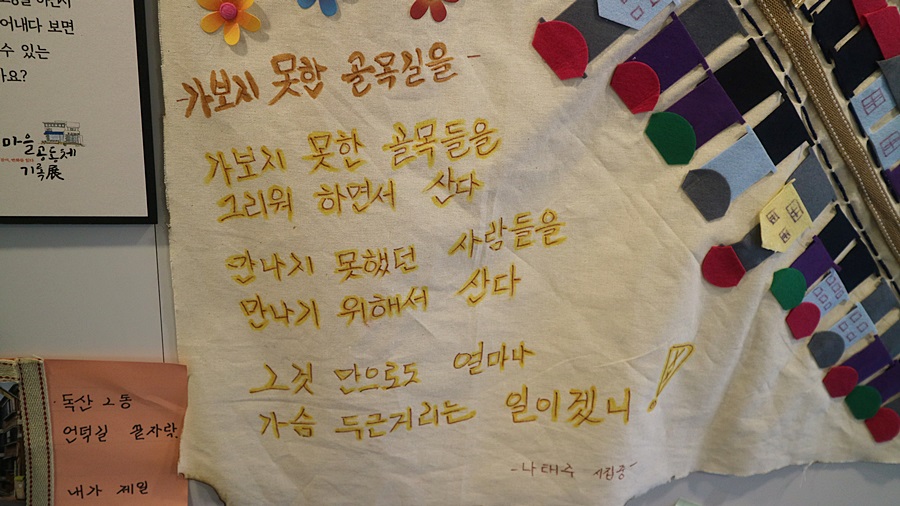 어내다 보면
수 있는
가요?
마을
공동체
기록展
-가보지 못한 골목길을-
가보지 못한 골목들을
그리워 하면서 산다
만나지 못했던 사람들을
만나기 위해서 산다
그것 만으로도 얼마나
가슴 두근거리는 일이겠니!
-나태주 시집중-
독산 2동
언덕길 끝자락.
내가 제일